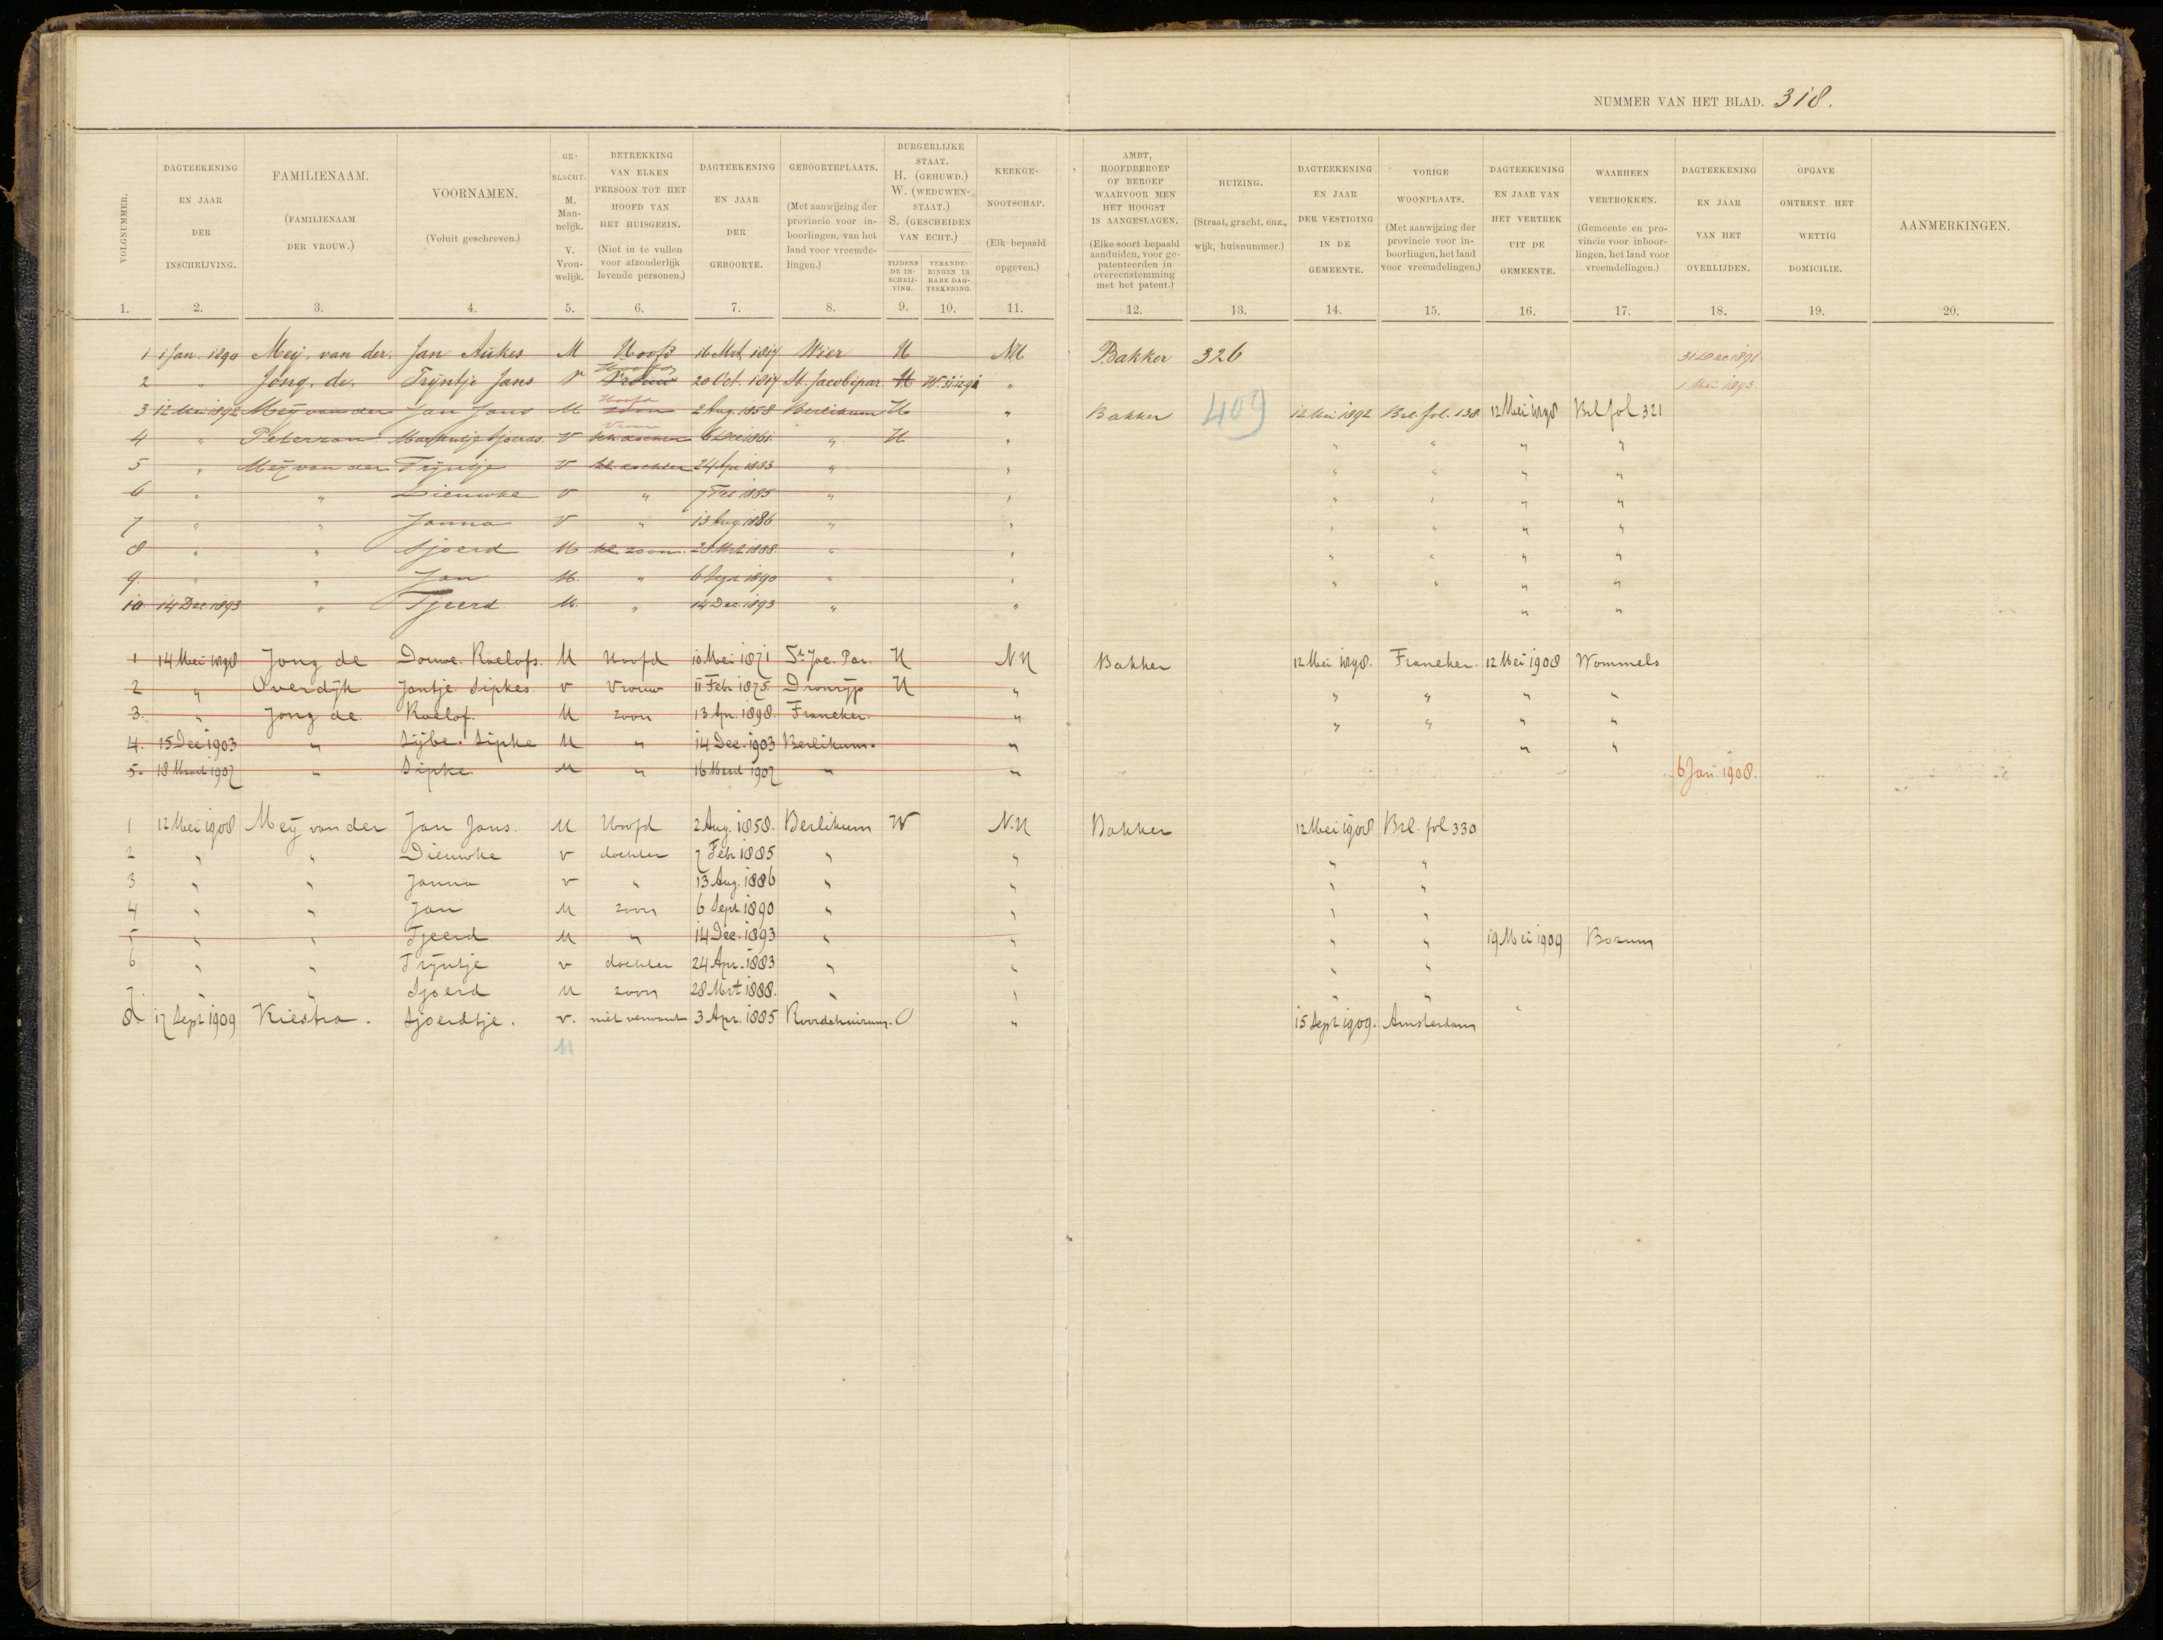 NUMMER VAN HET BLAD. 318.
VOLGNUMMER. 1.
DAGTEEKENING EN JAAR DER INSCHRIJVING. 2.
FAMILIENAAM. (FAMILIENAAM DER VROUW.) 3.
VOORNAMEN. (Voluit geschreven.) 4.
GESLACHT. M. Mannelijk. V. Vrouwelijk. 5.
BETREKKING VAN ELKEN PERSOON TOT HET HOOFD VAN HET HUISGEZIN. (Niet in te vullen voor afzonderlijk levende personen.) 6.
DAGTEEKENING EN JAAR DER GEBOORTE. 7.
GEBOORTEPLAATS. (Met aanwijzing der provincie voor inboorlingen, van het land voor vreemdelingen.) 8.
BURGERLIJKE STAAT. H. (GEHUWD.) W. (WEDUWEN-STAAT.) S. (GESCHEIDEN VAN ECHT.)
TIJDENS DE INSCHRIJVING. 9.
VERANDERINGEN IN HARE DAGTEEKENING. 10.
KERKGENOOTSCHAP. (Elk bepaald opgeven.) 11.
AMBT, HOOFDBEROEP OF BEROEP WAARVOOR MEN HET HOOGST IS AANGESLAGEN. (Elke soort bepaald aanduiden, voor gepatenteerden in overeenstemming met het patent.) 12.
HUIZING. (Straat, gracht, enz., wijk, huisnummer.) 13.
DAGTEEKENING EN JAAR DER VESTIGING IN DE GEMEENTE. 14.
VORIGE WOONPLAATS. (Met aanwijzing der provincie voor inboorlingen, het land voor vreemdelingen.) 15.
DAGTEEKENING EN JAAR VAN HET VERTREK UIT DE GEMEENTE. 16.
WAARHEEN VERTROKKEN. (Gemeente en provincie voor inboorlingen, het land voor vreemdelingen.) 17.
DAGTEEKENING EN JAAR VAN HET OVERLIJDEN. 18.
OPGAVE OMTRENT HET WETTIG DOMICILIE. 19.
AANMERKINGEN. 20.
1 1 Jan. 1890 Meij, van der. Jan Aukes M Hoofd 16 Mrt 1817 Wier H NH Bakker 326 31 Dec 1891
2 " Jong, de. Trijntje Jans V Hoofd Vrouw 20 Oct. 1817 St. Jacobipar. H W. 31.12.91 " 1 Mei 1893
3 12 Mei 1892 Meij van der Jan Jans M Hoofd zoon 2 Aug. 1858 Berlikum H " Bakker 409 12 Mei 1892 Brl. fol. 138 12 Mei 1898 Brl fol 321
4 " Peterson Sjoerds V Vrouw 6 Dec 1861 " H " " " " "
5 " Meij van der Trijntje V kl. dochter 24 Apr 1883 " " " " " "
6 " " Dieuwke V " 7 Feb 1885 " " " " " "
7 " " Janna V " 13 Aug. 1886 " " " " " "
8 " " Sjoerd M kl. zoon 28 Mrt 1888 " " " " " "
9. " " Jan M. " 6 Sept 1890 " " " " " "
10 14 Dec. 1893 " Tjeerd M. " 14 Dec. 1893 " " " "
1 14 Mei 1898 Jong de Douwe. Roelofs. M Hoofd 10 Mei 1871 St. Jac. Par. H N H Bakker 12 Mei 1898. Franeker. 12 Mei 1908 Wommels
2 " Overdijk Jantje Sipkes V Vrouw 11 Febr 1875. Dronrijp H " " " " "
3. " Jong de. Roelof. M zoon 13 Apr. 1898. Franeker. " " " " "
4. 15 Dec 1903 " Sijbe. Sipke M " 14 Dec. 1903 Berlikum. " " "
5. 18 Maart 1907 " Sipke. M " 16 Maart 1907 " " 6 Jan. 1908.
1 12 Mei 1908 Meij van der Jan Jans. M Hoofd 2 Aug. 1858. Berlikum W N.H Bakker 12 Mei 1908 Brl. fol 330
2 " " Dieuwke V dochter 7 Febr 1885 " " " "
3 " " Janna V " 13 Aug. 1886 " " " "
4 " " Jan M zoon 6 Sept 1890 " " " "
5 " " Tjeerd M " 14 Dec. 1893 " " " " 19 Mei 1909 Bozum
6 " " Trijntje V dochter 24 Apr. 1883 " " " "
7. " " Sjoerd M zoon 28 Mrt 1888. " " " "
8. 17 Sept 1909 Kiestra. Sjoerdtje. V. niet verwant 3 Apr. 1885 Roordahuizum. O " 15 Sept 1909. Amsterdam "
M